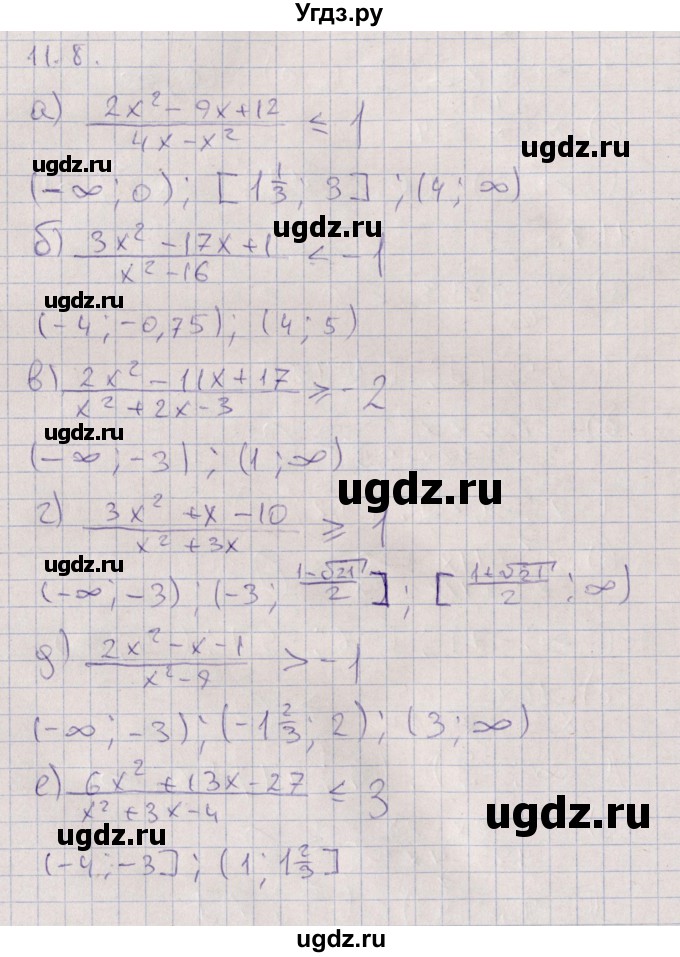 Угдз.ру
11.8.
а) (2x² - 9x + 12)/(4x - x²) ≤ 1
ugdz.ru ugdz.ru
(-∞; 0); [1 1/3; 3]; (4; ∞)
ugdz.ru
б) (3x² - 17x + 1)/(x² - 16) < -1
ugdz.ru
(-4; -0,75); (4; 5)
в) (2x² - 11x + 17)/(x² + 2x - 3) ≥ -2
ugdz.ru
(-∞; -3); (1; ∞)
ugdz.ru
г) (3x² + x - 10)/(x² + 3x) ≥ 1
ugdz.ru
(-∞; -3); (-3; (1-√21)/2]; [(1+√21)/2; ∞)
д) (2x² - x - 1)/(x² - 9) > -1
ugdz.ru
(-∞; -3); (-1 2/3; 2); (3; ∞)
е) (6x² + 13x - 27)/(x² + 3x - 4) ≤ 3
ugdz.ru
ugdz.ru
(-4; -3]; (1; 1 2/3]
ugdz.ru